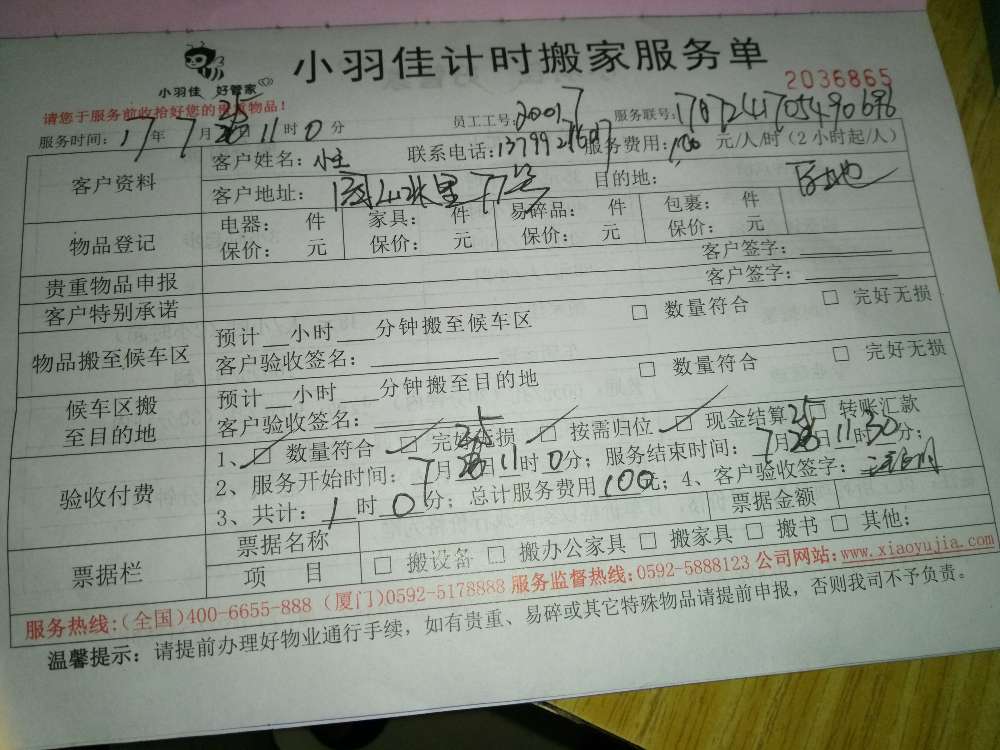 小羽佳 好管家
小羽佳计时搬家服务单
2036865
请您于服务前收拾好您的贵重物品！
员工工号：20017 服务联号：
服务时间：17年7月25日11时0分
客户资料 客户姓名： 联系电话： 服务费用：100元/人/时（2小时起/人）
客户地址： 目的地：
物品登记 电器： 件 家具： 件 易碎品： 件 包裹： 件
保价： 元 保价： 元 保价： 元 保价： 元
贵重物品申报 客户签字：
客户特别承诺 客户签字：
物品搬至候车区 预计 小时 分钟搬至候车区 □ 数量符合 □ 完好无损
客户验收签名：
候车区搬至目的地 预计 小时 分钟搬至目的地 □ 数量符合 □ 完好无损
客户验收签名：
验收付费 1、□ 数量符合 □ 完好无损 □ 按需归位 □ 现金结算 □ 转账汇款
2、服务开始时间：7月25日11时0分；服务结束时间：7月25日11时30分；
3、共计：1时0分；总计服务费用100元；4、客户验收签字：
票据栏 票据名称 票据金额
项 目 □ 搬设备 □ 搬办公家具 □ 搬家具 □ 搬书 □ 其他：
服务热线：（全国）400-6655-888（厦门）0592-5178888 服务监督热线：0592-5888123 公司网站：www.xiaoyujia.com
温馨提示：请提前办理好物业通行手续，如有贵重、易碎或其它特殊物品请提前申报，否则我司不予负责。